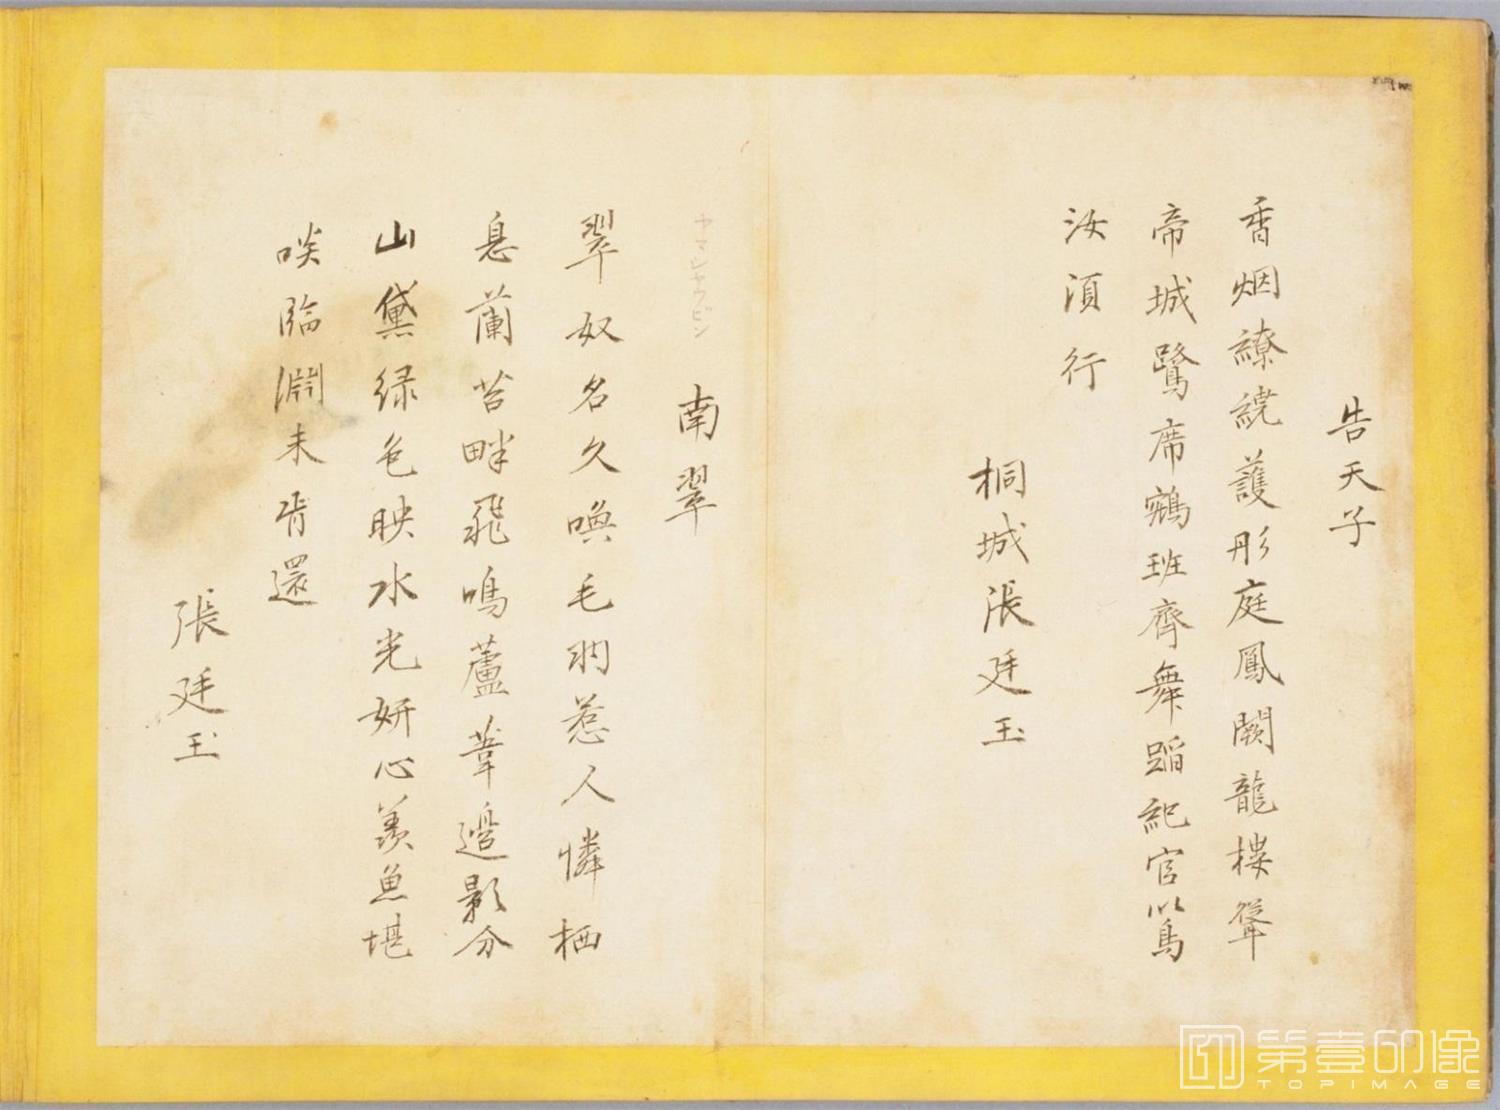 告天子
香烟繚繞護彤庭鳳闕龍樓聳
帝城鷺席鵷班齊舞蹈紀官以鳥
汝須行
桐城張廷玉
ヤマショウビン
南翠
翠奴名久喚毛羽惹人憐栖
息蘭苕畔飛鳴蘆葦邊影分
山黛绿色映水光妍心羨魚堪
啖臨淵未肯還
張廷玉
第壹印像
TOPIMAGE